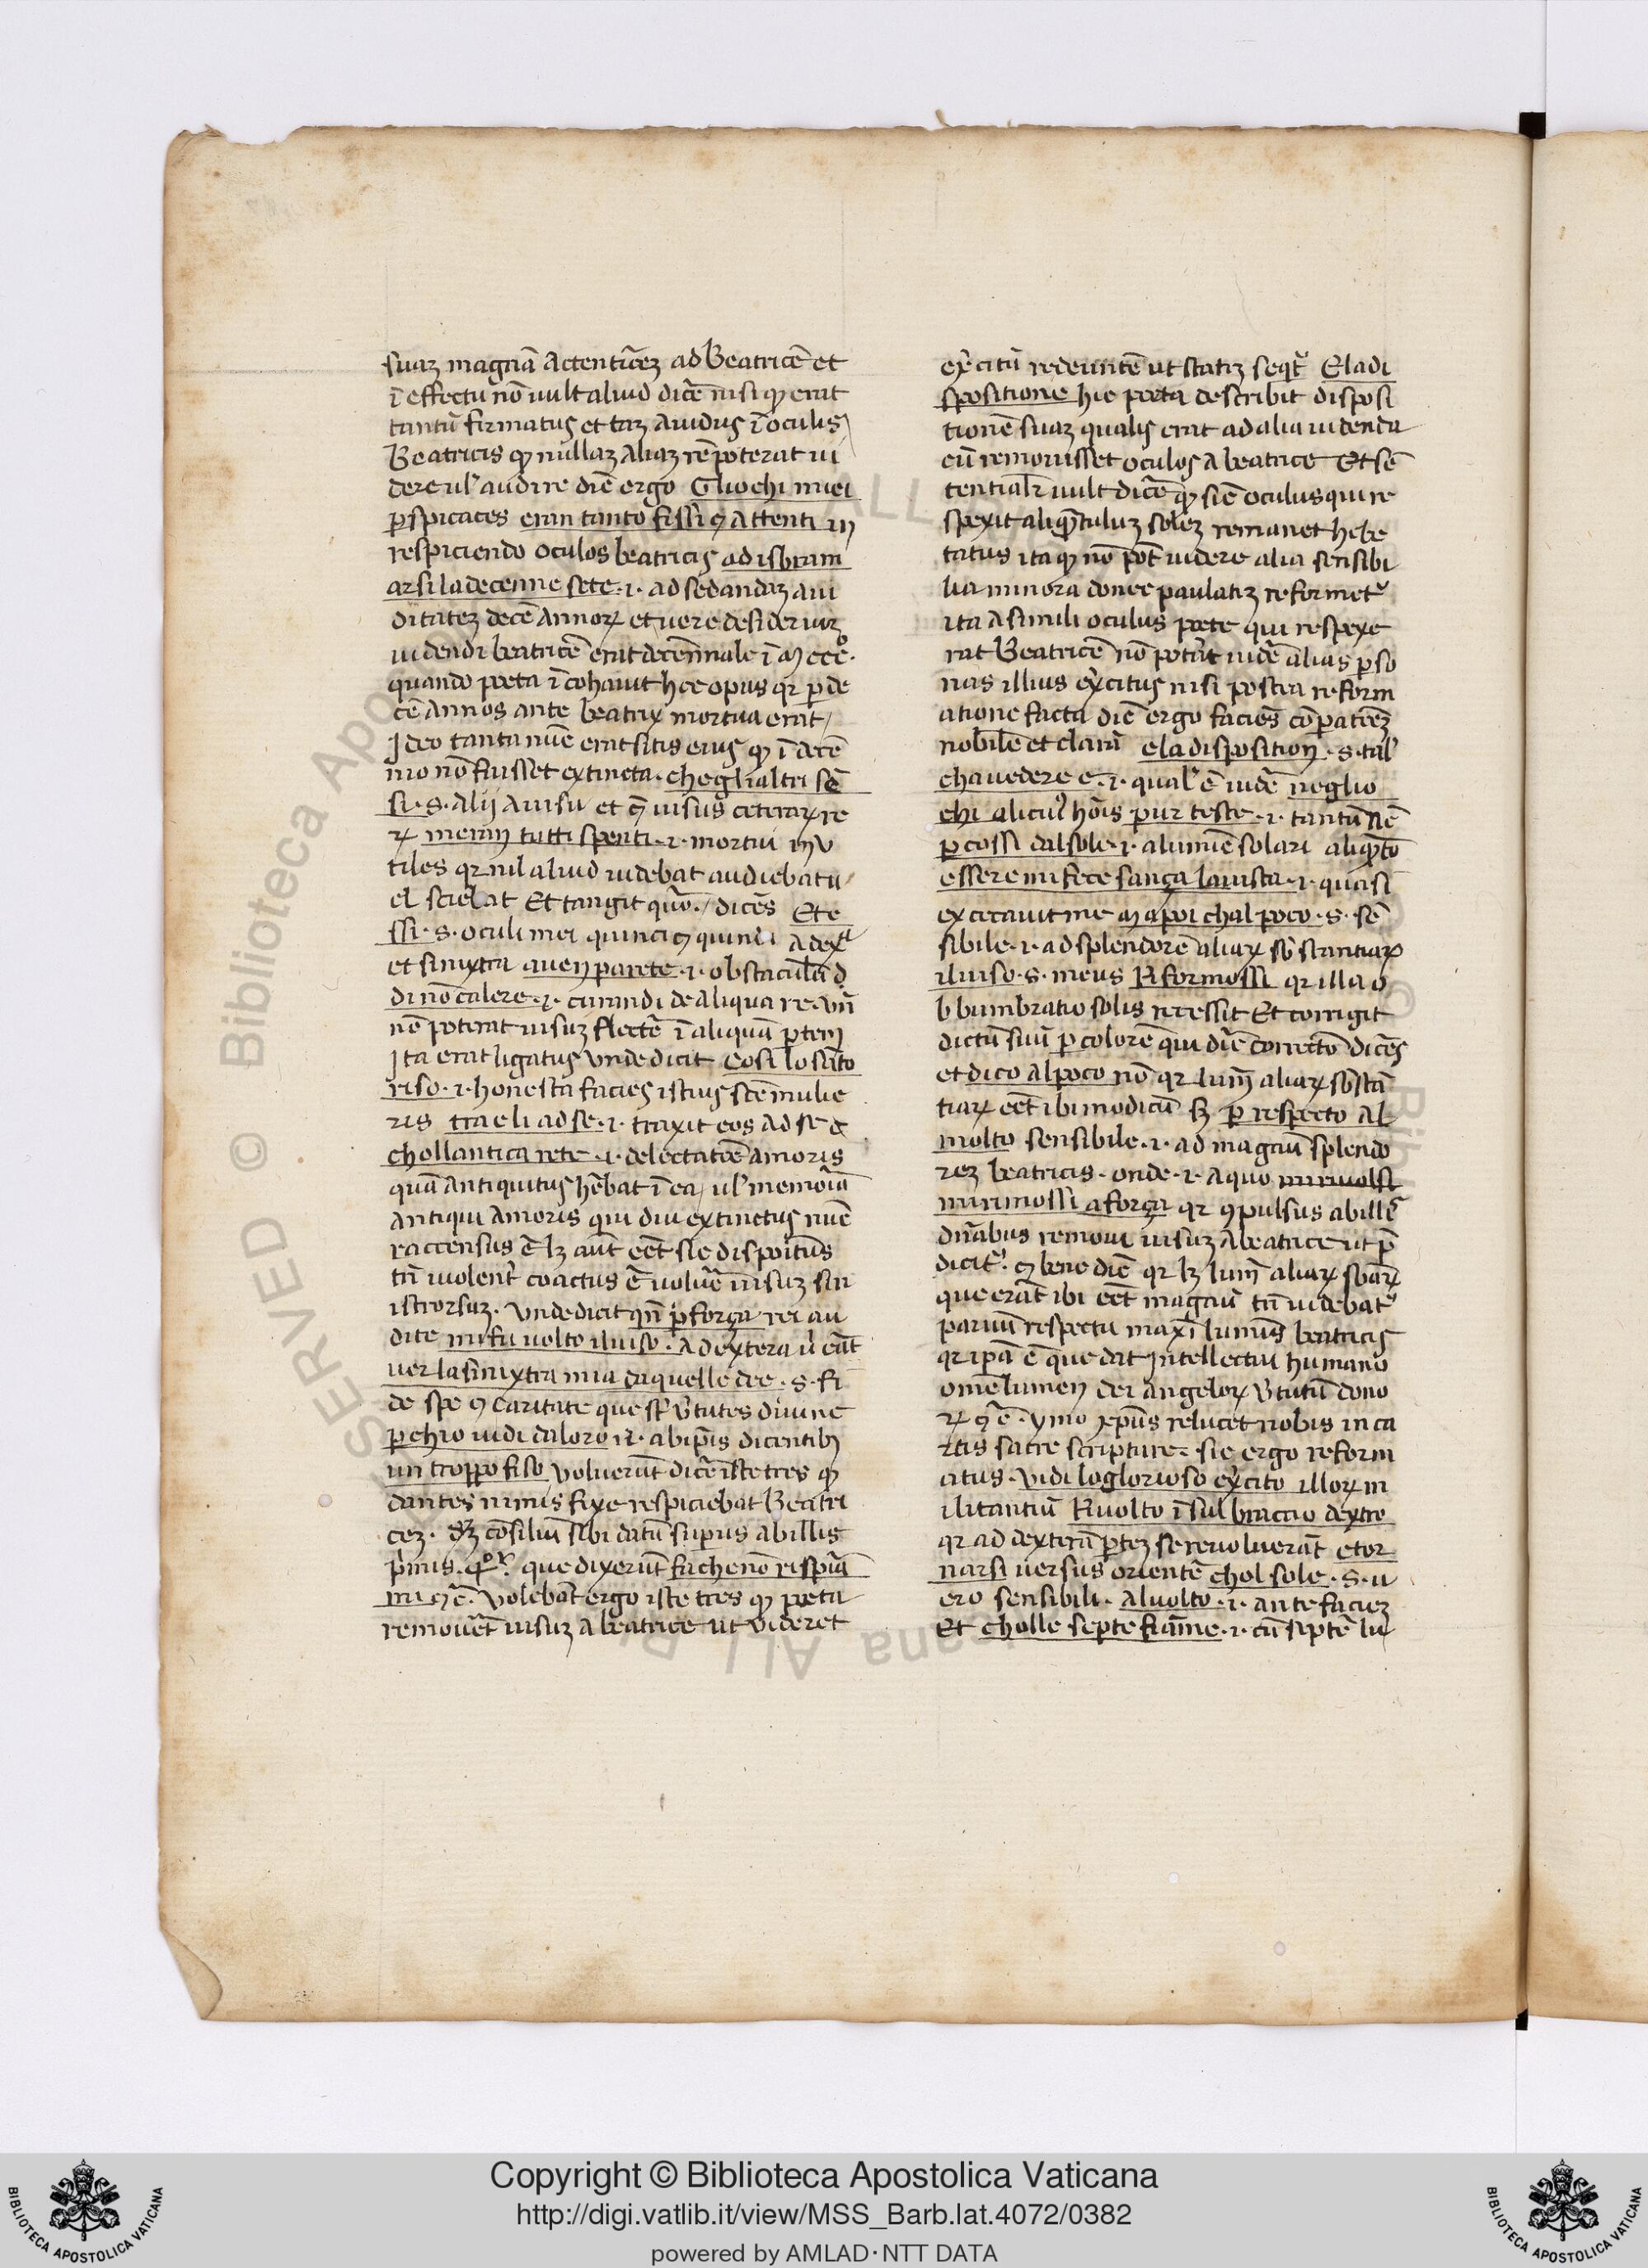 suaꝫ magnā actentiōeꝫ ad Beatricē et
ī effectu nō uult aliud dicē nisi qꝫ erat
tantū firmatus et taꝫ auidus ī oculis
Beatricis qꝫ nullaꝫ aliaꝫ rē poterat ui
dere ul' audire diē ergo Gliochi miei
ꝑspicaces eran tanto fissi ꝯ attenti in
respiciendo oculos beatricis adisbram
arsi la decenne sete .i. ad sedandaꝫ aui
ditateꝫ decē annoꝝ et uere desideriuꝫ
uidendi beatricē erat decennale ī
quando poeta ī cohauit hoc opus qꝛ ꝑ de
cē annos ante beatrix mortua erat
Ideo tanta nūc erat sitis eius qꝫ ī decē
nio nō fuisset extincta. che glialtri sē
si .s. alij a uisu et visus ceteraꝝ re
ꝝ meran tutti spenti .i. mortui inu
tiles qꝛ nil aliud uidebat audiebat u
el sciebat Et tangit quō. dicēs Et e
ssi .s. oculi mei quinci ꝯ quindi a dext
et sinixtra auen parete .i. obstacula d
di nō calere .i. curandi de aliqua re Vn̄
nō poterat uisuꝫ flectē ī aliquā ꝑtem
Ita erat ligatus vnde dicit cosi lo sāto
riso .i. honesta facies istius scē mulie
ris traeli ad se .i. traxit eos ad se ꝯ
chollantica rete .i. delectatiōe amoris
quā antiquitus hēbat ī ea ul' memoriā
antiqui amoris qui diu extinctus nūc
raccensus ē lꝫ aūt eēt sic dispoitus
tn̄ uiolent' coactus ē uoluē uisuꝫ sin
istrorsuꝫ. Vnde dicit qn̄ ꝑ força rei au
dite mi fu uolto il uiso. A dextera u' eāt
uer la sinixtra mia da quelle dee .s. fi
de spe ꝯ caritate que st' v'tutes diuine
perchio uidi da loro .i. ab ip̄is dicentibꝫ
un troppo fiso voluerūt dicē iste tres qꝫ
dantes nimis fixe respiciebat Beatri
ceꝫ. consiliū sibi datū supius ab illis
p'mis. que dixerūt fa che nō rispiā
mi ꝯē. Volebāt ergo iste tres qꝫ poeta
remouēt uisuꝫ a beatrice ut videret
ex'citū redeuntē ut statiꝫ seqt' E la di
spositione hic poeta describit disposi
tionē suaꝫ qualis erat ad alia uidenda
cū remouisset oculos a beatrice Et sē
tentialr̄ uult dicē qꝫ sic oculus qui re
spexit aliqꝫtuluꝫ soleꝫ remanet hebe
tatus ita qꝫ nō pōt uidere alia sensibi
lia minora donec paulatiꝫ reformet'
ita a simili oculus poete qui respexe
rat Beatricē nō potuit uidē alias ꝑso
nas illius ex'citus nisi postea reform
atione facta diē ergo faciēs cōꝑatiōeꝫ
nobilē et clarā e la disposition .s. tal'
cha uedere e .i. qual' ē uidē neglio
chi alicui' hōis pur teste .i. tantū nē
ꝑcossi dal sole .i. a lumie solari aliqꝫto
essere mi fece sança la uista .i. quasi
excecauit me ma poi chal poco .s. sē
sibile .i. ad splendorē aliaꝝ sb'stantiaꝝ
il uiso .s. meus Riformossi qꝛ illa o
bbumbratio solis recessit Et corrigit
dictū suū ꝑ colorē qui dr̄ correctō dicēs
et dico al poco nō qꝛ lumē aliaꝝ sb'stā
tiaꝝ eēt ibi modicū sꝫ ꝑ respecto al
molto sensibile .i. ad magnū splendo
reꝫ beatricis. onde .i. a quo
mi rimossi a força qꝛ ꝯpulsus ab ill'
dn̄abus remoui uisuꝫ a beatrice ut p̄
dicit'. ꝯ bene diē qꝛ lꝫ lumē aliaꝝ
que erāt ibi eēt magnū tn̄ uidebat'
paruū respectu maxi luminis beatricis
qꝛ ip̄a ē que dat Intellectui humano
omē lumen dei angeloꝝ v'tutū dono
ꝝ ꝯē. ymo xp̄us relucet nobis in ca
rtis sacre scripture. sic ergo reform
atus. vidi lo glorioso ex'cito illoꝝ m
ilitantiū Riuolto ī sul braccio dextro
qꝛ ad dexterā ꝑteꝫ se reuoluerāt e tor
narsi uersus orientē chol sole .s. u
ero sensibili. al uolto .i. ante facieꝫ
Et cholle septe fiāme .i. cū septē lu
Copyright © Biblioteca Apostolica Vaticana
http://digi.vatlib.it/view/MSS_Barb.lat.4072/0382
powered by AMLAD·NTT DATA
BIBLIOTECA APOSTOLICA VATICANA
BIBLIOTECA APOSTOLICA VATICANA